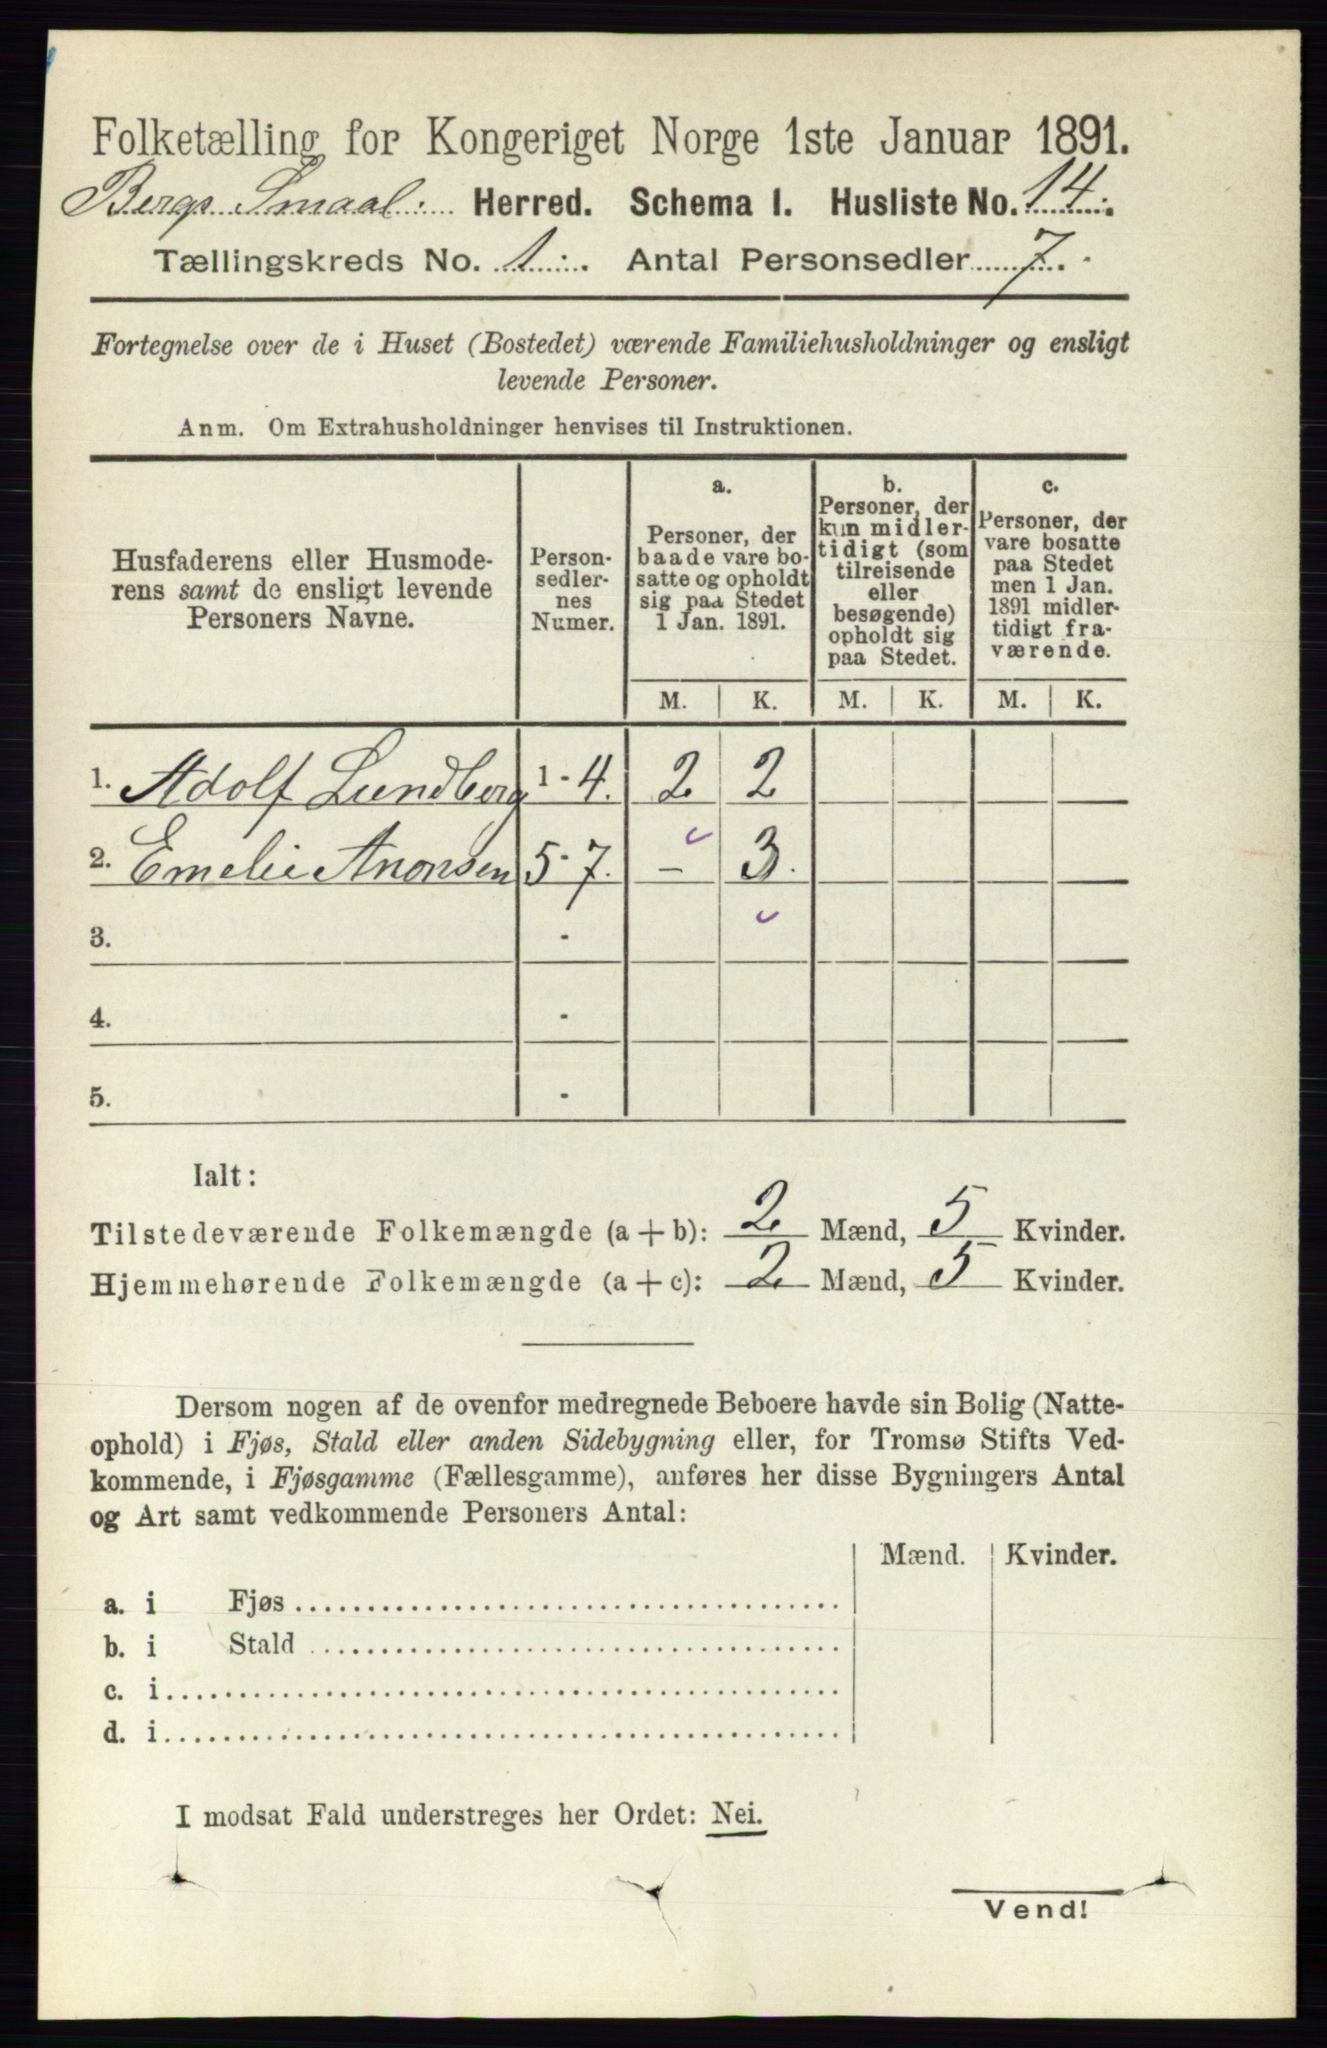 Folketælling for Kongeriget Norge 1ste Januar 1891.
Bergs Smaal. Herred. Schema I. Husliste No. 14.
Tællingskreds No. 1. Antal Personsedler 7.
Fortegnelse over de i Huset (Bostedet) værende Familiehusholdninger og ensligt
levende Personer.
Anm. Om Extrahusholdninger henvises til Instruktionen.
Husfaderens eller Husmode-
rens samt de ensligt levende
Personers Navne.
Person-
sedler-
nes
Numer.
a.
Personer, der
baade vare bo-
satte og opholdt
sig paa Stedet
1 Jan. 1891.
b.
Personer, der
kun midler-
tidigt (som
tilreisende
eller
besøgende)
opholdt sig
paa Stedet.
c.
Personer, der
vare bosatte
paa Stedet
men 1 Jan.
1891 midler-
tidigt fra-
værende.
M. K. M. K. M. K.
1. Adolf Lundberg 1 - 4. 2 2
2. Emelie Anonsen 5 - 7. - 3.
3. -
4. -
5. -
Ialt:
Tilstedeværende Folkemængde (a + b): 2 Mænd, 5 Kvinder.
Hjemmehørende Folkemængde (a + c): 2 Mænd, 5 Kvinder.
Dersom nogen af de ovenfor medregnede Beboere havde sin Bolig (Natte-
ophold) i Fjøs, Stald eller anden Sidebygning eller, for Tromsø Stifts Ved-
kommende, i Fjøsgamme (Fællesgamme), anføres her disse Bygningers Antal
og Art samt vedkommende Personers Antal:
Mænd. Kvinder.
a. i Fjøs
b. i Stald
c. i
d. i
I modsat Fald understreges her Ordet: Nei.
Vend!